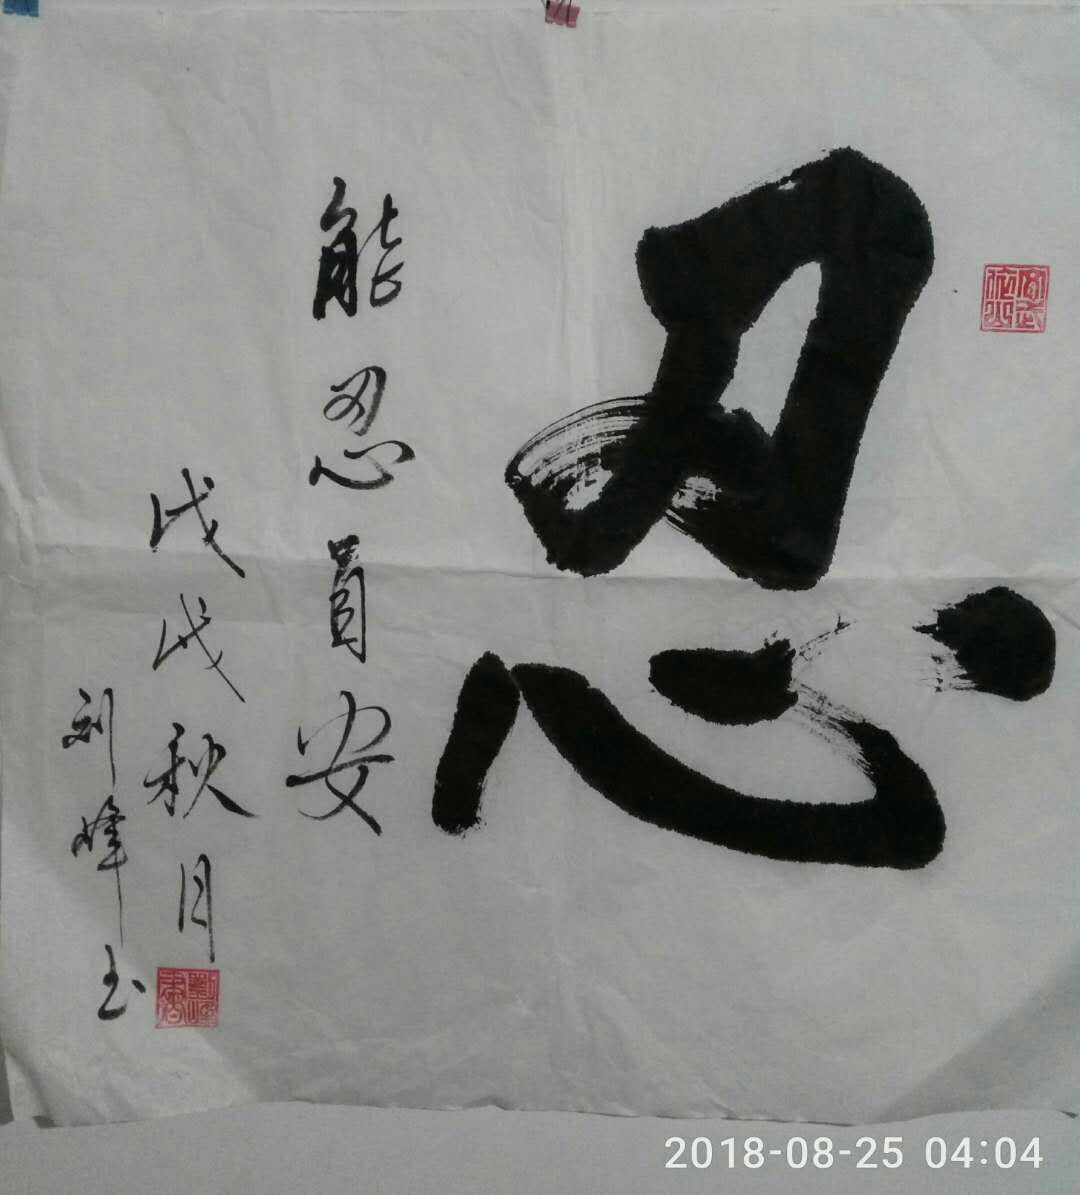 忍
能忍自安
戊戌秋月
刘峰书
2018-08-25 04:04